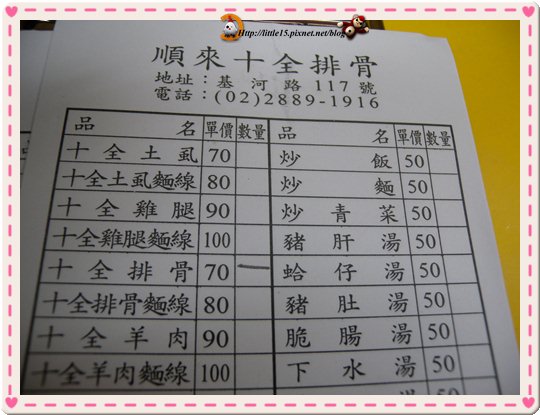 Http://little15.pixnet.net/blog
順來十全排骨
地址：基河路117號
電話：(02)2889-1916
品名 單價 數量 品名 單價 數量
十全土虱 70 炒飯 50
十全土虱麵線 80 炒麵 50
十全雞腿 90 炒青菜 50
十全雞腿麵線 100 豬肝湯 50
十全排骨 70 一 蛤仔湯 50
十全排骨麵線 80 豬肚湯 50
十全羊肉 90 脆腸湯 50
十全羊肉麵線 100 下水湯 50